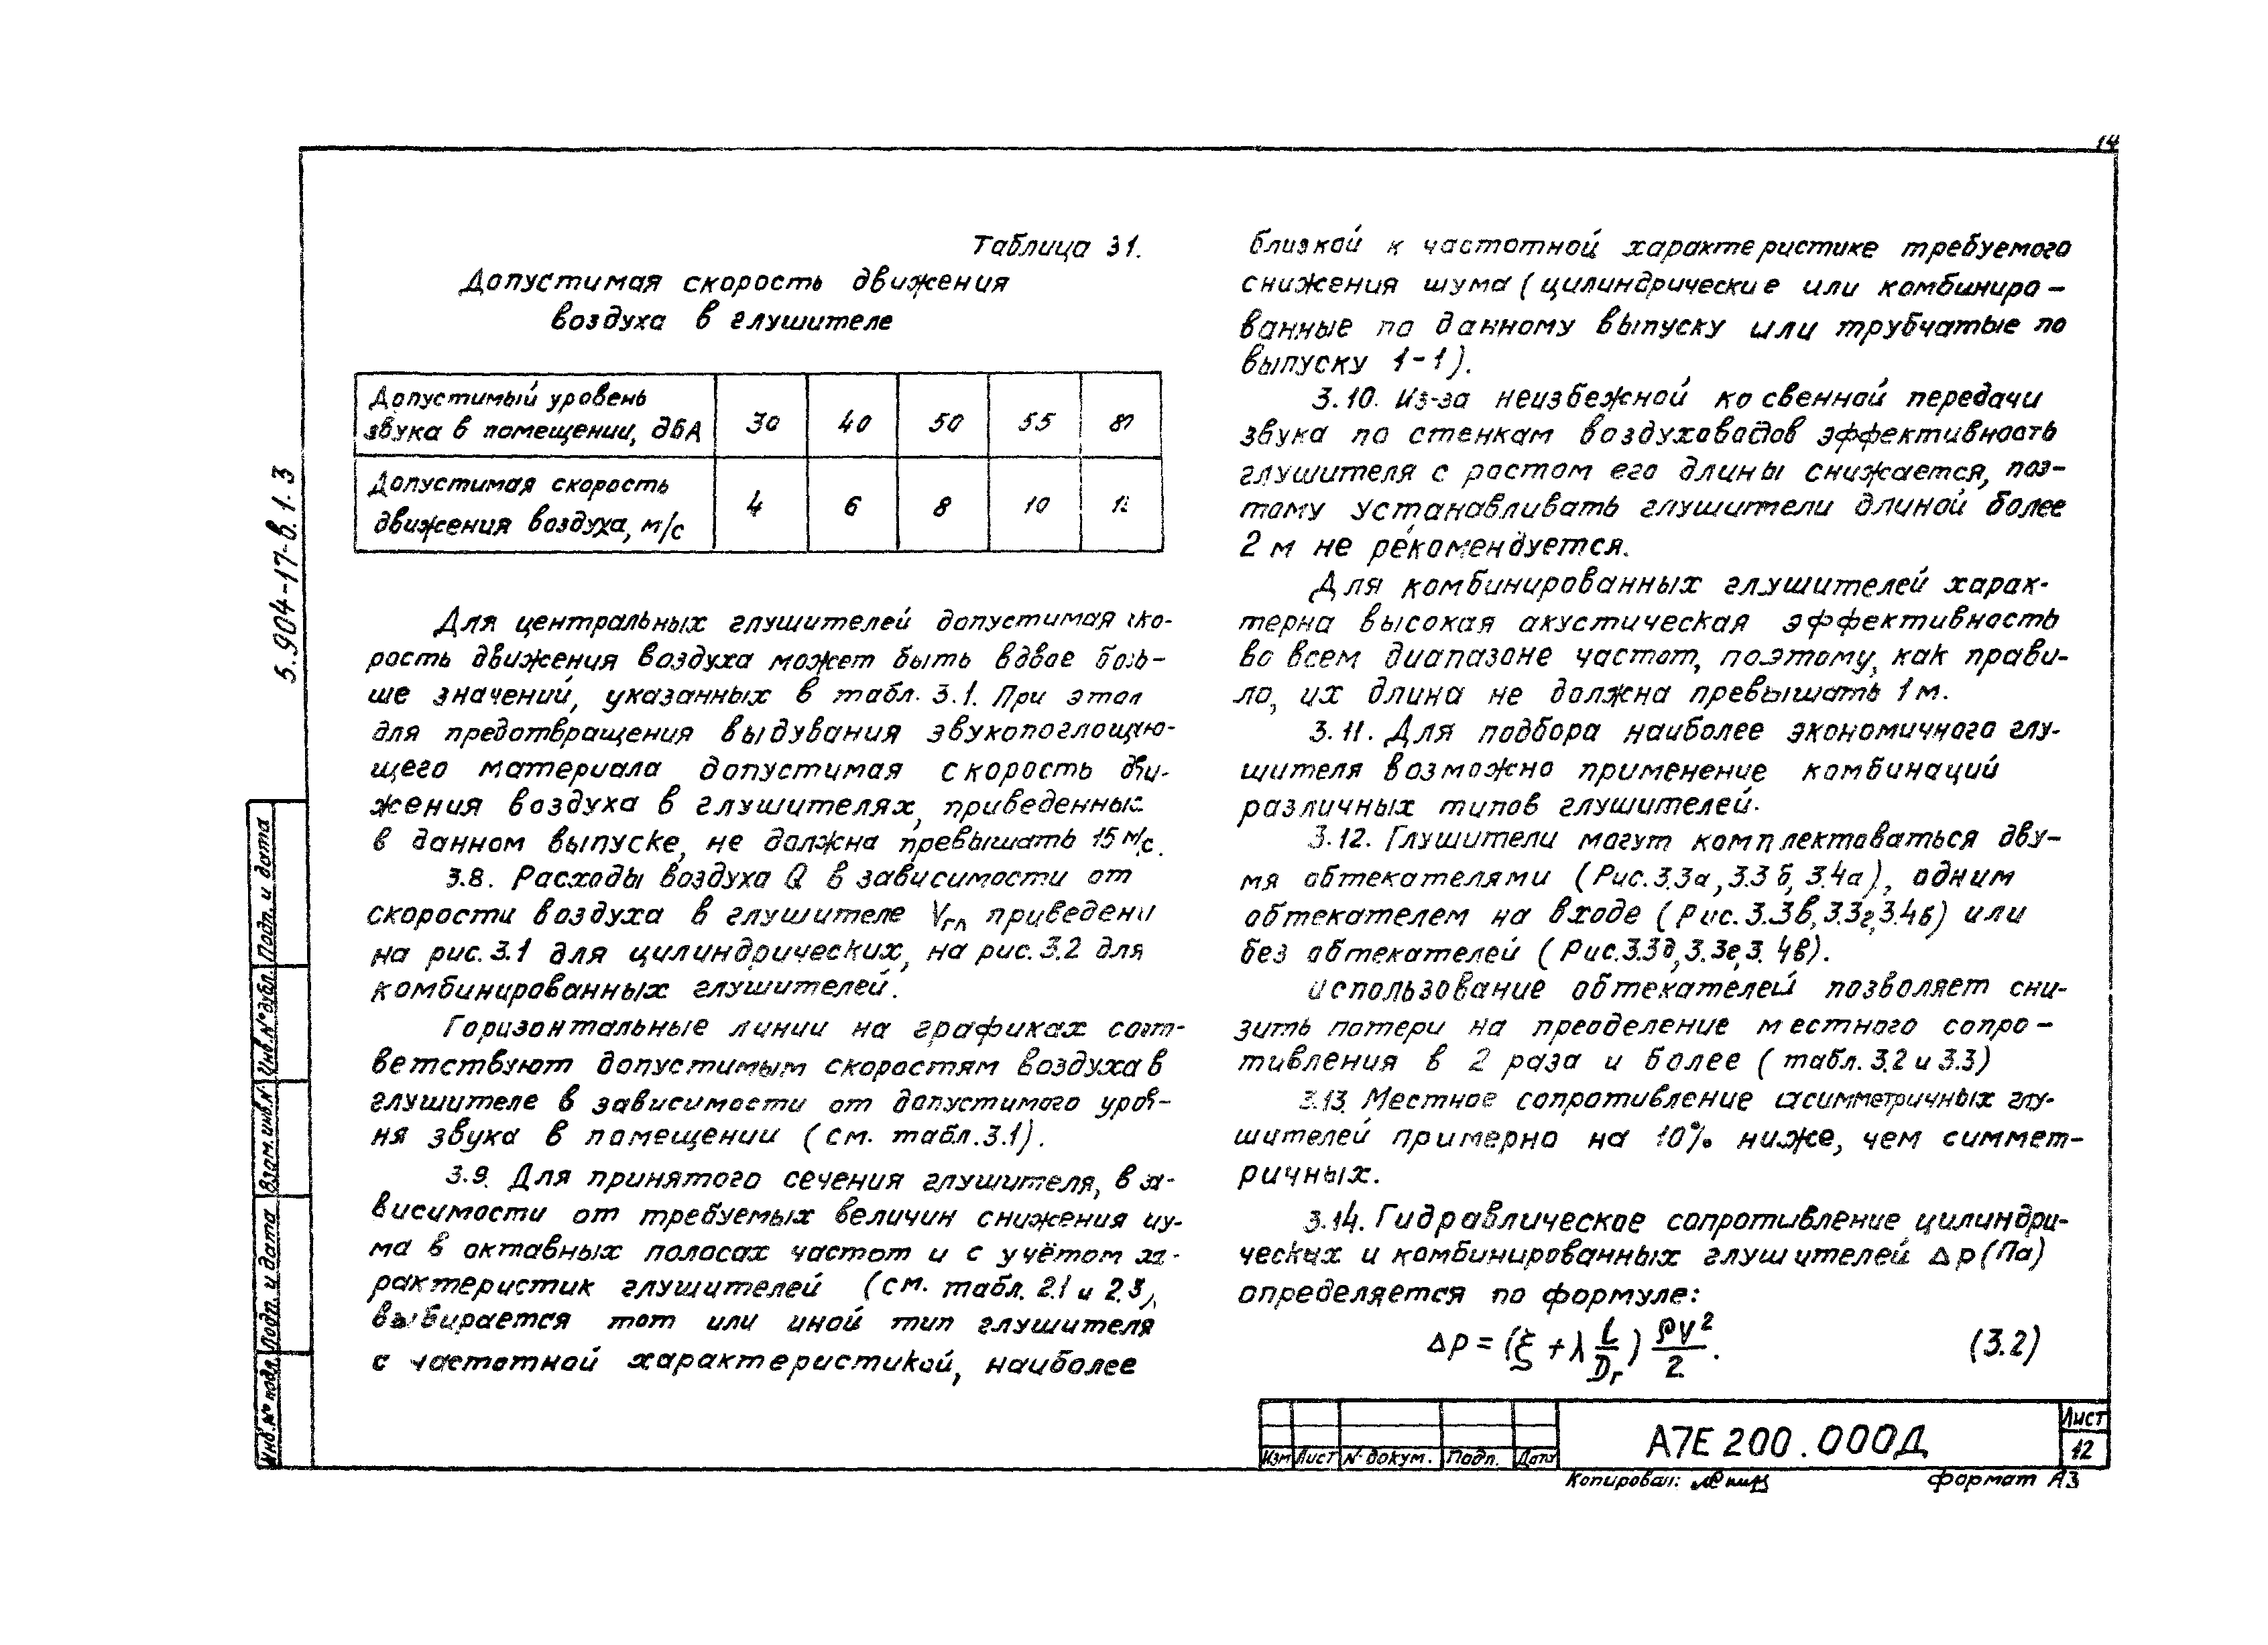 14
Таблица 3.1.
Допустимая скорость движения
воздуха в глушителе
Допустимый уровень
звука в помещении, дБА 30 40 50 55
Допустимая скорость
движения воздуха, м/с 4 6 8 10
Для центральных глушителей допустимая ско-
рость движения воздуха может быть вдвое боль-
ше значений, указанных в табл. 3.1. При этом
для предотвращения выдувания звукопоглощаю-
щего материала допустимая скорость дви-
жения воздуха в глушителях, приведенных
в данном выпуске, не должна превышать 15 м/с.
3.8. Расходы воздуха Q в зависимости от
скорости воздуха в глушителе Vгл приведены
на рис. 3.1 для цилиндрических, на рис. 3.2 для
комбинированных глушителей.
Горизонтальные линии на графиках соот-
ветствуют допустимым скоростям воздуха в
глушителе в зависимости от допустимого уров-
ня звука в помещении (см. табл. 3.1).
3.9. Для принятого сечения глушителя, в за-
висимости от требуемых величин снижения шу-
ма в октавных полосах частот и с учётом ха-
рактеристик глушителей (см. табл. 2.1 и 2.3),
выбирается тот или иной тип глушителя
с частотной характеристикой, наиболее
близкой к частотной характеристике требуемого
снижения шума (цилиндрические или комбиниро-
ванные по данному выпуску или трубчатые по
выпуску 1-1).
3.10. Из-за неизбежной косвенной передачи
звука по стенкам воздуховодов эффективность
глушителя с ростом его длины снижается, поэ-
тому устанавливать глушители длиной более
2 м не рекомендуется.
Для комбинированных глушителей харак-
терна высокая акустическая эффективность
во всем диапазоне частот, поэтому, как прави-
ло, их длина не должна превышать 1 м.
3.11. Для подбора наиболее экономичного глу-
шителя возможно применение комбинаций
различных типов глушителей.
3.12. Глушители могут комплектоваться дву-
мя обтекателями (Рис. 3.3а, 3.3б, 3.4а), одним
обтекателем на входе (Рис. 3.3в, 3.3г, 3.4б) или
без обтекателей (Рис. 3.3д, 3.3е, 3.4в).
Использование обтекателей позволяет сни-
зить потери на преоделение местного сопро-
тивления в 2 раза и более (табл. 3.2 и 3.3)
3.13. Местное сопротивление асимметричных глу-
шителей примерно на 10% ниже, чем симмет-
ричных.
3.14. Гидравлическое сопротивление цилиндри-
ческих и комбинированных глушителей Δp (Па)
определяется по формуле:
Δp = (ξ + λ L/Dг) ρv²/2. (3.2)
5.904-17-в.1.3
Подп. и дата
Инв. № дубл.
Взам. инв. №
Подп. и дата
Инв. № подл.
Изм Лист № докум. Подп. Дата
А7Е 200.000Д
Лист
12
Копировал:
формат А3